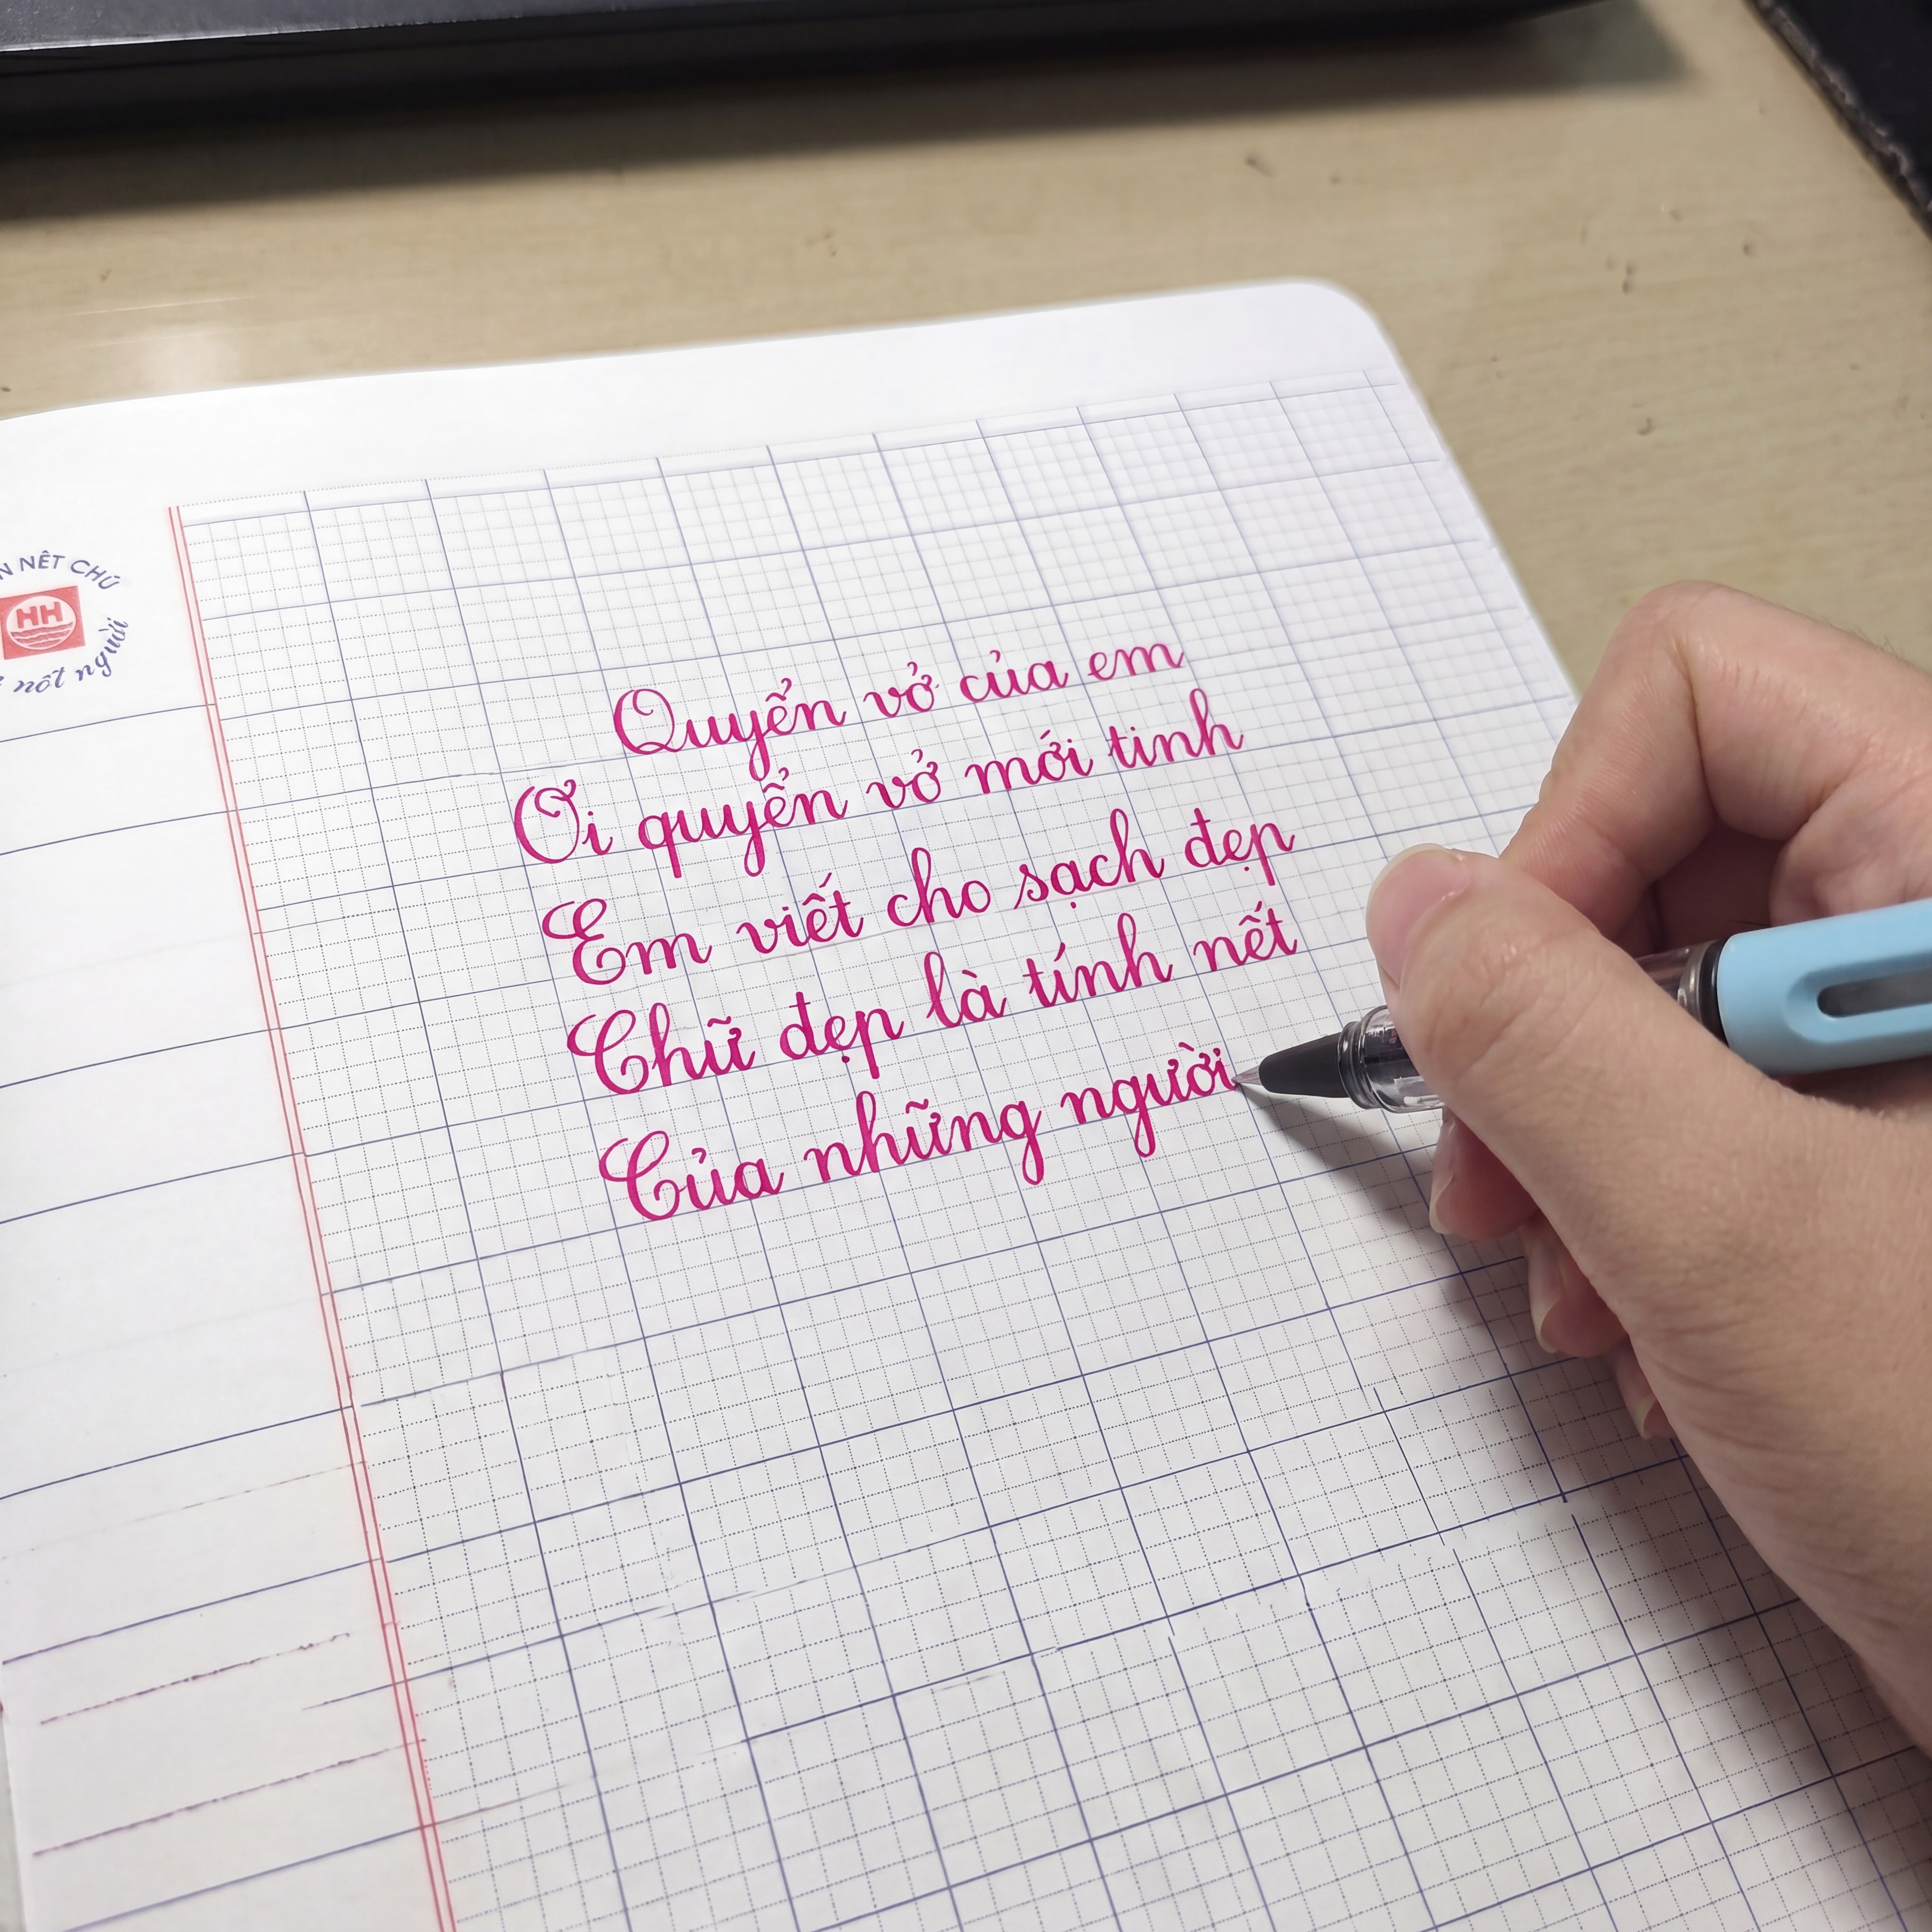 NÉT CHỮ
HH
nết người
Quyển vở của em
Ơi quyển vở mới tinh
Em viết cho sạch đẹp
Chữ đẹp là tính nết
Của những người